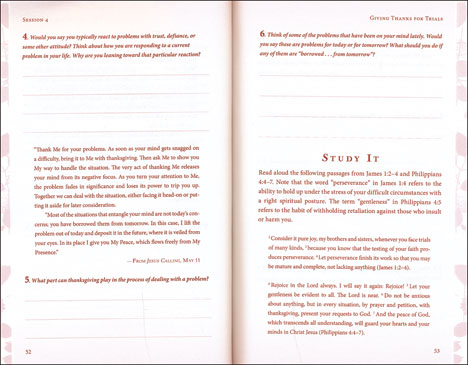 Session 4
4. Would you say you typically react to problems with trust, defiance, or
some other attitude? Think about how you are responding to a current
problem in your life. Why are you leaning toward that particular reaction?
"Thank Me for your problems. As soon as your mind gets snagged on
a difficulty, bring it to Me with thanksgiving. Then ask Me to show you
My way to handle the situation. The very act of thanking Me releases
your mind from its negative focus. As you turn your attention to Me,
the problem fades in significance and loses its power to trip you up.
Together we can deal with the situation, either facing it head-on or put-
ting it aside for later consideration.
"Most of the situations that entangle your mind are not today's con-
cerns; you have borrowed them from tomorrow. In this case, I lift the
problem out of today and deposit it in the future, where it is veiled from
your eyes. In its place I give you My Peace, which flows freely from My
Presence."
—From Jesus Calling, May 11
5. What part can thanksgiving play in the process of dealing with a problem?
32
Giving Thanks for Trials
6. Think of some of the problems that have been on your mind lately. Would
you say these are problems for today or for tomorrow? What should you do if
any of them are "borrowed . . . from tomorrow"?
Study It
Read aloud the following passages from James 1:2–4 and Philippians
4:4–7. Note that the word "perseverance" in James 1:4 refers to the
ability to hold up under the stress of your difficult circumstances with
a right spiritual posture. The term "gentleness" in Philippians 4:5
refers to the habit of withholding retaliation against those who insult
or harm you.
2 Consider it pure joy, my brothers and sisters, whenever you face trials
of many kinds, 3 because you know that the testing of your faith pro-
duces perseverance. 4 Let perseverance finish its work so that you may
be mature and complete, not lacking anything (James 1:2–4).
4 Rejoice in the Lord always. I will say it again: Rejoice! 5 Let your
gentleness be evident to all. The Lord is near. 6 Do not be anxious
about anything, but in every situation, by prayer and petition, with
thanksgiving, present your requests to God. 7 And the peace of God,
which transcends all understanding, will guard your hearts and your
minds in Christ Jesus (Philippians 4:4–7).
33